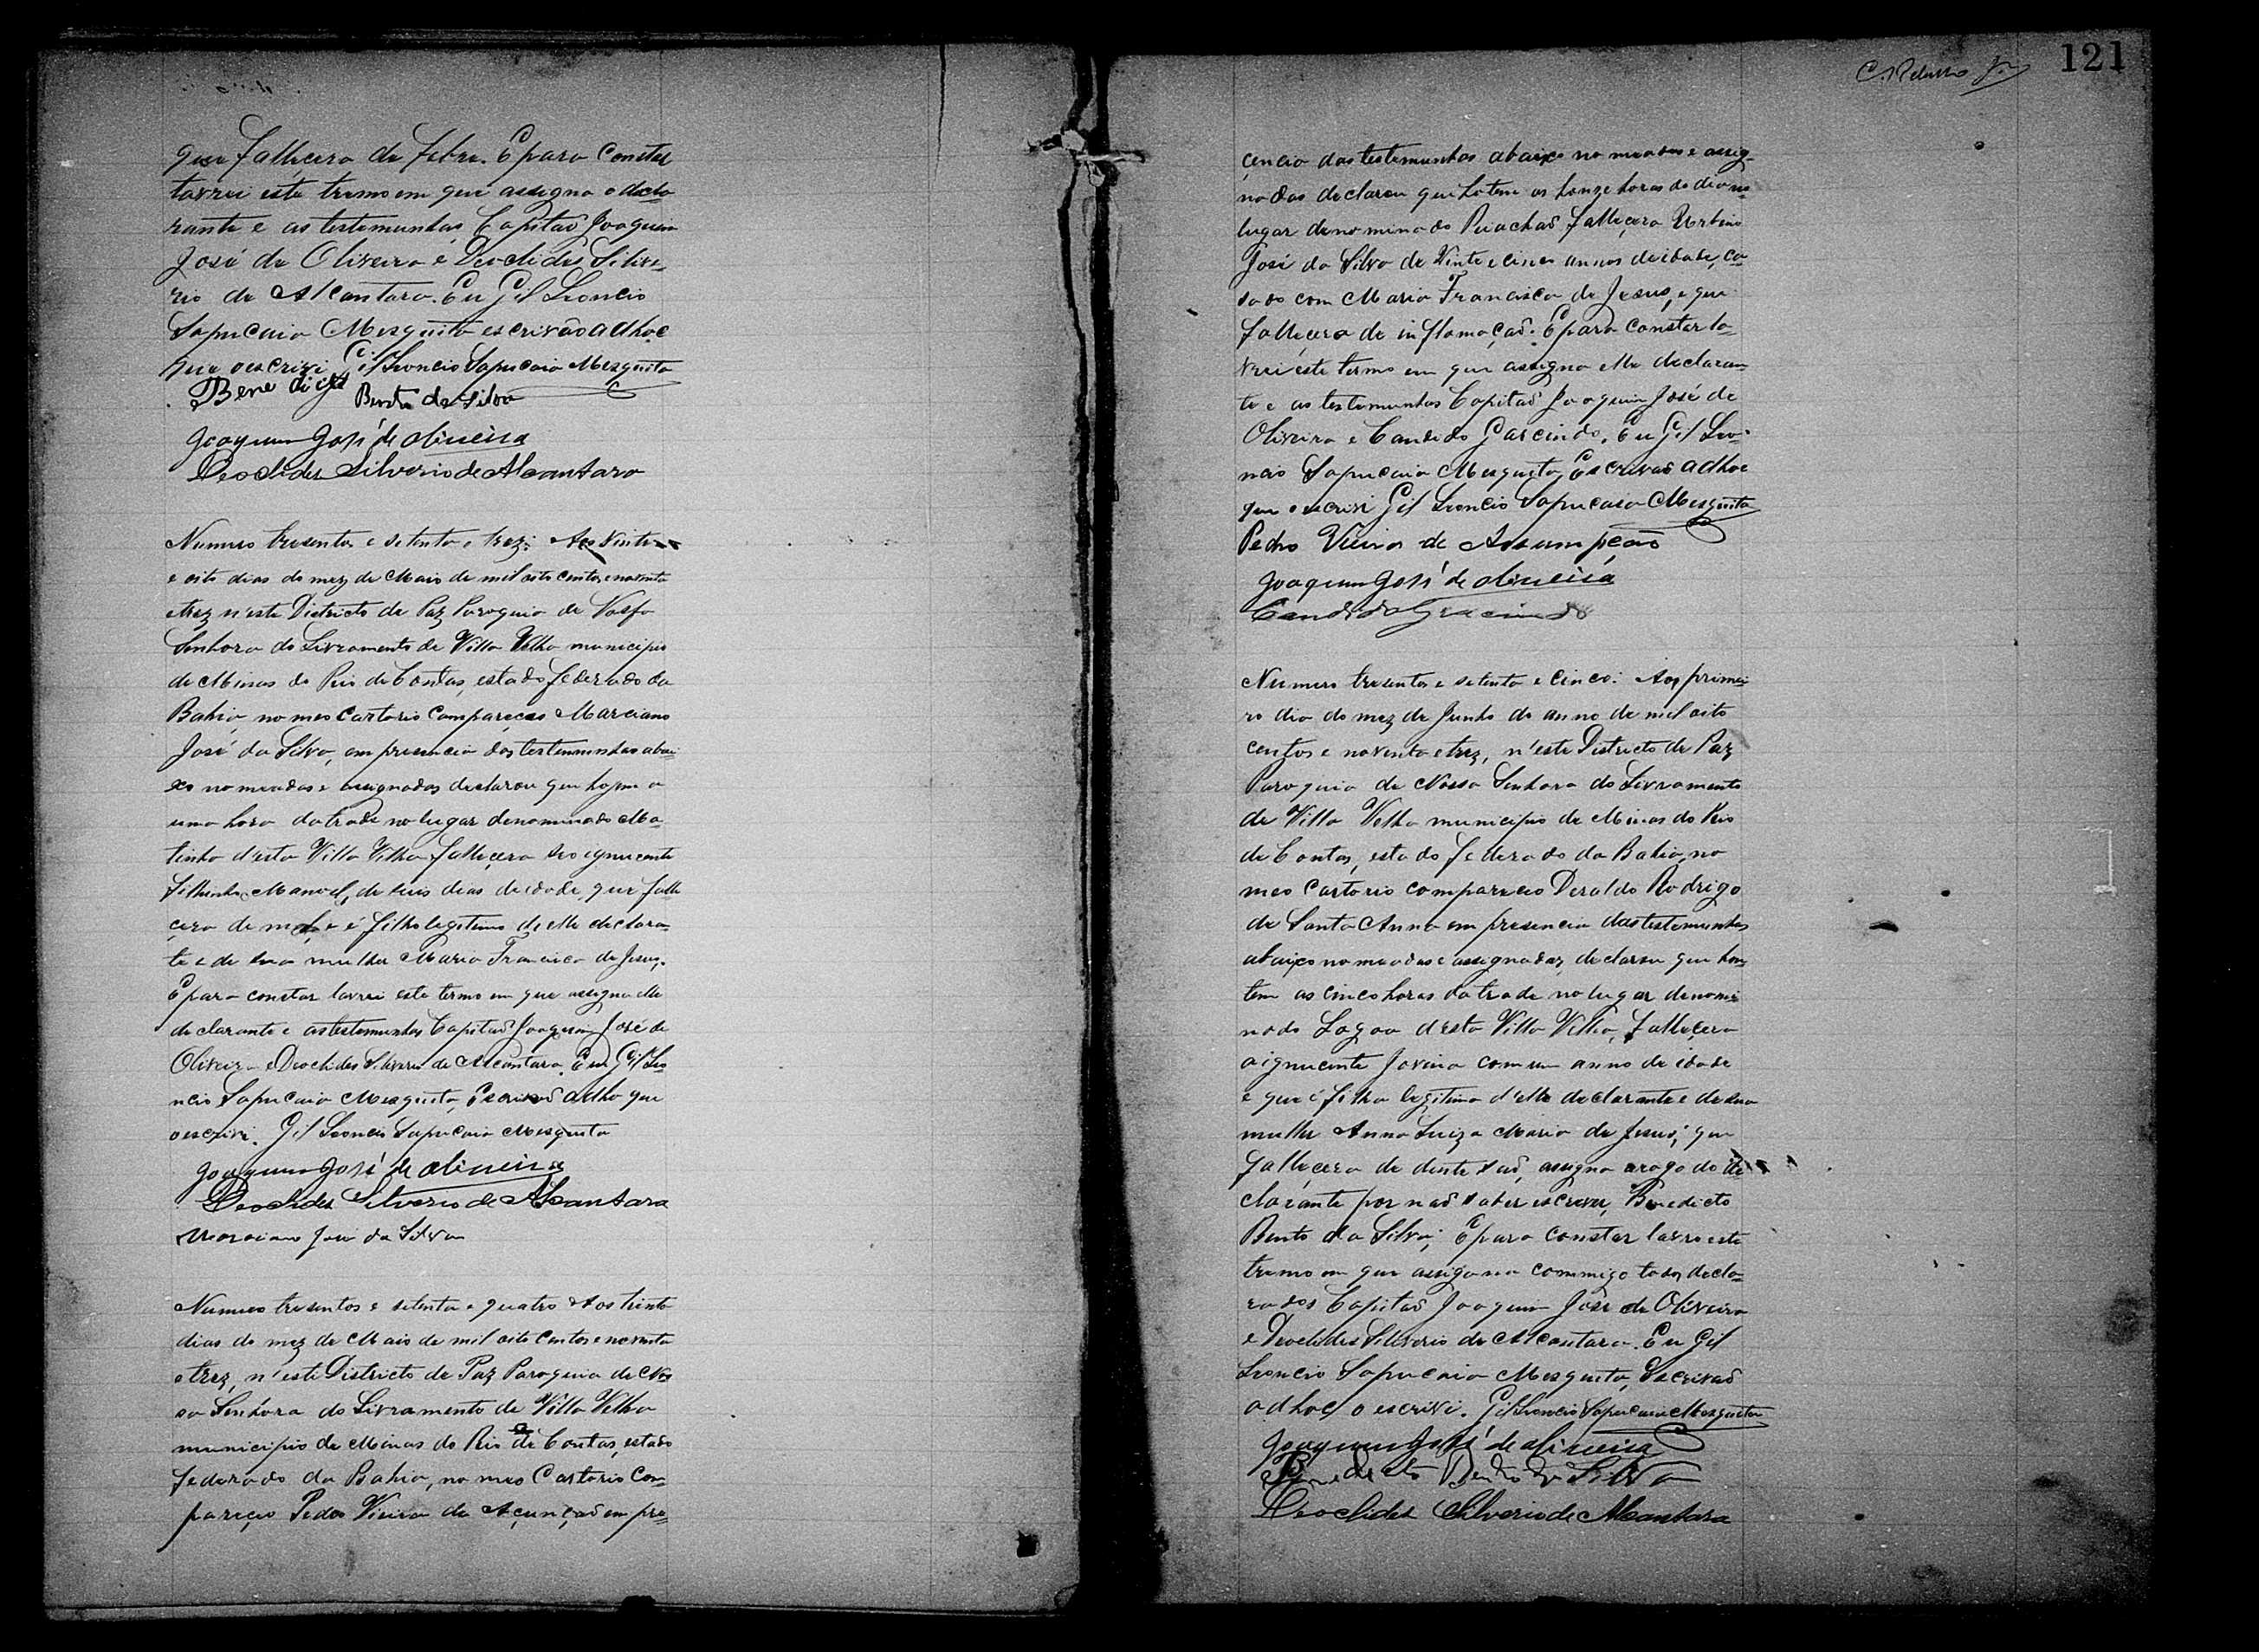 que fallecera de febre. E para constar
lavrei este tremo em que assigna o decla
rante e as testemunhas Capitaõ Joaquim
José de Oliveira e Deoclides Silve-
rio de Alcantara. Eu Gil Leoncio
Sapucaia Mesquita escrivão adhoc
que o escrivi Gil Leoncio Sapucaia Mesquita
Benedicto Bento da Silva
Joaquim José de Oliveira
Deoclides Silverio de Alcantara
Numero tresentos e setenta e trez: Aos vinte
e oito dias do mez de Maio de mil oito centos e noventa
e trez n'este Districto de Paz Paroquia de Nossa
Senhora do Livramento de Villa Velha municipio
de Minas do Rio de Contas, estado federado da
Bahia, no meo Cartorio compareceo Marciano
José da Silva, em presencia das testemunhas abai
xo nomeadas e assignadas declarou que hoje a
uma hora da trade no lugar denominado Ma-
tinha d'esta Villa Velha falleçera seo ignucente
filhinho Manoel, de seis dias de idade, que falle
çera de mal, e é filho legitimo d'elle declaran-
te e de sua mulher Maria Francisca de Jesus.
E para constar lavrei este termo em que assigna elle
declarante e as testemunhas Capitaõ Joaquim José de
Oliveira e Deoclides Silverio de Alcantara. Eu Gil Leo
ncio Sapucaia Mesquita, Escrivaõ adho que
o escrivi. Gil Leoncio Sapucaia Mesquita
Joaquim José de Oliveira
Deoclides Silverio de Alcantara
Marciano José da Silva
Numero tresentos e setenta e quatro Aos trinta
dias do mez de Maio de mil oito centos e noventa
e trez, n'este Districto de Paz Paroquia de Nos
sa Senhora do Livramento de Villa Velha
municipio de Minas do Rio de Contas, estado
federado da Bahia, no meo Cartorio com
pareçeo Pedro Vieira de Açunçaõ em pre-
121
çencia das testemunhas abaixo nomeadas e assig-
nadas declarou que hotem as honze horas do dia no
lugar denominado Riachaõ falleçera Urbino
José da Silva de Vinte e cinco annos de idade, ca-
sado com Maria Francisca de Jesus, e que
falleçera de inflamaçaõ. E para constar la-
vrei este termo em que assigna elle declaran
te e as testemunhas Capitaõ Joaquim José de
Oliveira e Candido Garcindo. Eu Gil Leo-
ncio Sapucaia Mesquita, Escrivaõ adhoc
que o escrivi Gil Leoncio Sapucaia Mesquita
Pedro Vieira de Assumpção
Joaquim José de Oliveira
Candido Gracindo
Numero tresentos e setenta e cinco: Aos primei
ro dia do mez de Junho do anno de mil oito
centos e noventa e trez, n'este Districto de Paz
Paroquia de Nossa Senhora do Livramento
de Villa Velha municipio de Minas do Rio
de Contas, estado federado da Bahia, no
meo Cartorio compareceo Deraldo Rodrigo
de Santa Anna em presencia das testemunhas
abaixo nomeadas e assignadas, declarou que hon
tem as cinco horas da trade no lugar denomi
nado Lagoa d'esta Villa Velha, falleçera
a ignucente Jovina com um anno de idade
e que é filha legitima d'elle declarante e de sua
mulher Anna Luiza Maria de Jesus; que
falleçera de dentesaõ, assigna arogo do de
clarante por naõ saber escrever, Benedicto
Bento da Silva; E para constar lavro este
tremo em que assigna commigo todos decla-
rados Capitaõ Joaquim José de Oliveira
e Deoclides Silverio de Alcantara. Eu Gil
Leoncio Sapucaia Mesquita, Escrivaõ
adhoc, o escrivi. Gil Leoncio Sapucaia Mesquita
Joaquim José de Oliveira
Benedicto Bento da Silva
Deoclides Silverio de Alcantara